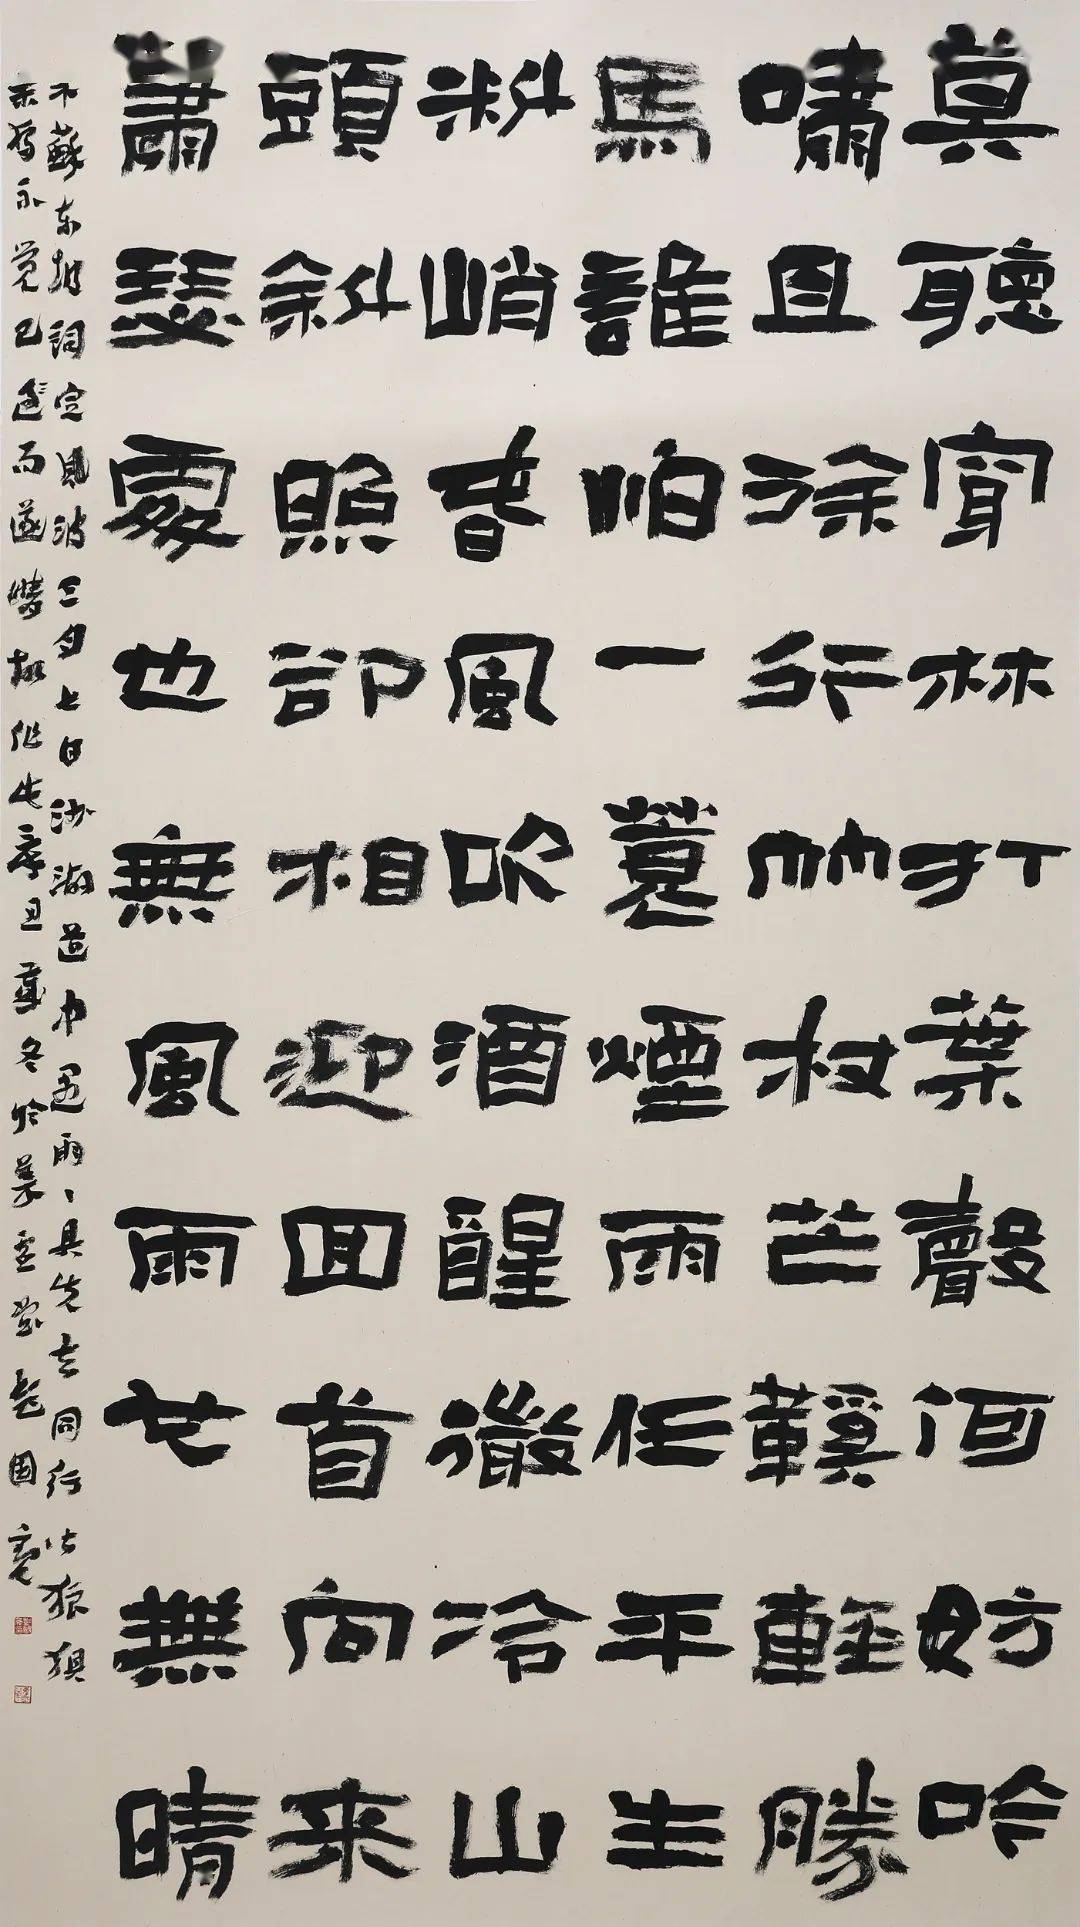 莫聽穿林打葉聲何妨吟
嘯且徐行竹杖芒鞵輕勝
馬誰怕一蓑煙雨任平生
料峭春風吹酒醒微冷山
頭斜照卻相迎回首向来
蕭瑟處也無風雨也無晴
蘇東坡詞定風波三月七日沙湖道中遇雨〻具先去同行皆狼狽
余獨不覺已而遂晴故作此辛丑歲冬於